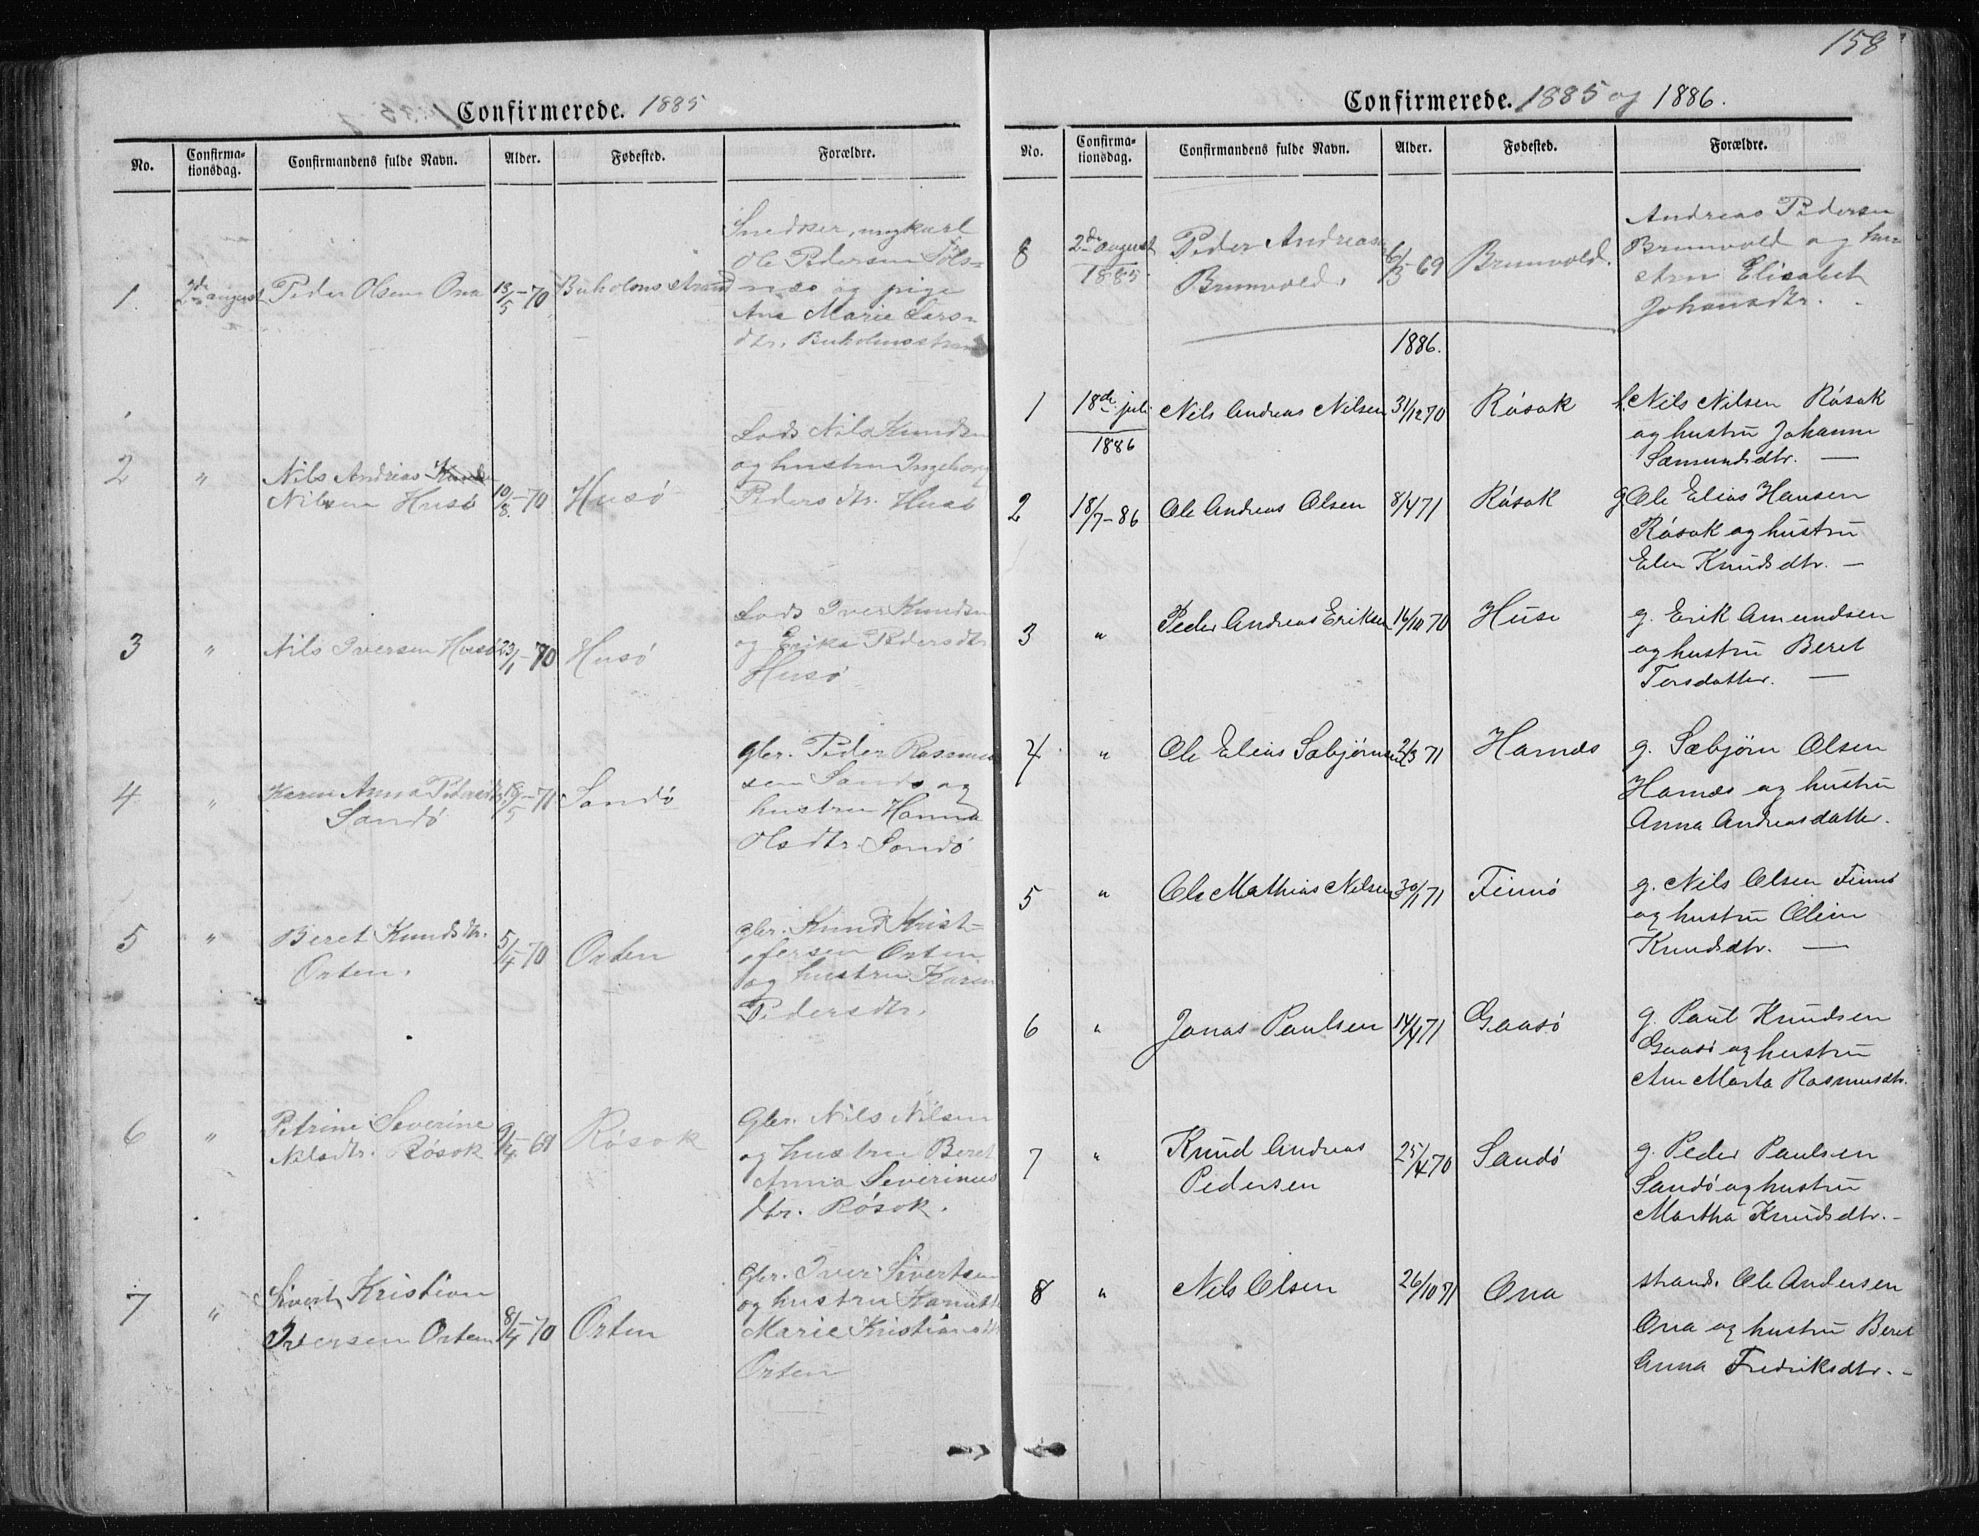 Confirmerede. 1885
No. Confirmationsdag. Confirmandens fulde Navn. Alder. Fødested. Forældre.
1. 2de august Peder Olsen Ona 13/5-70 Buholmsstrand
ungkarl
Ole Pedersen Søls=
næs og pige
Ane Marie Lars=
dtr. Buholmsstrand
2 " Nils Andreas
Nilsen Husø 10/8-70 Husø
Lods Nils Knudsen
og hustru Ingeborg
Pedersdtr. Husø
3 " Nils Iversen Husø 23/1-70 Husø
Lods Iver Knudsen
og Erika Pedersdtr
Husø
4 " Karen Anna Pedersdtr
Sandø 19/5-71 Sandø
gbr. Peder Rasmus
sen Sandø og
hustru Hanna
Olsdtr. Sandø
5 " Beret Knudsdtr.
Orten. 5/4-70 Orten
gbr. Knud Krist=
ofersen Orten
og hustru Karen
Pedersdtr.
6 " Petrine Severine
Nilsdtr. Røsok 9/4-69 Røsok
Gbr. Nils Nilsen
og hustru Beret
Anna Severinus
dtr. Røsok.
7 " Sivert Kristian
Iversen Orten 8/4-70 Orten
Gbr. Iver Sivertsen
og hustru
Marie Kristiansdtr
Orten
158
Confirmerede. 1885 og 1886.
No. Confirmationsdag. Confirmandens fulde Navn. Alder. Fødested. Forældre.
8 2de august
1885. Peder Andreas
Brunvold. 6/3-69 Brunvold.
Andreas Pedersen
Brunvold og hus
Elisabet
Johansdtr.
1886.
1 18de juli
1886 Nils Andreas Nilsen 31/12 70 Røsok
Nils Nilsen Røsok
og hustru Johanne
Sæmundsdtr. —
2 18/7-86 Ole Andreas Olsen 8/4 71 Røsok
g Ole Elias Hansen
Røsok og hustru
Elen Knudsdtr. —
3 " Peder Andreas Eriksen 16/10 70 Huse
g. Erik Amundsen
og hustru Beret
Torsdatter. —
4 " Ole Elias Sæbjørnsen 2/3 71 Harnæs
g. Sæbjørn Olsen
Harnæs og hustru
Anna Andreasdatter.
5 " Ole Mathias Nilsen 30/1 71 Finnø
g. Nils Olsen Finnø
og hustru Oline
Knudsdtr. —
6 " Jonas Paulsen 14/4 71 Gaasø
g. Paul Knudsen
Gaasø og hustru
Ane Marta Rasmusdtr.
7 " Knud Andreas
Pedersen 25/4 70 Sandø
g. Peder Paulsen
Sandø og hustru
Martha Knudsdtr. -
8 " Nils Olsen 26/10 71 Ona
strands. Ole Andersen
Ona og hustru Beret
Anna Fredriksdtr. -